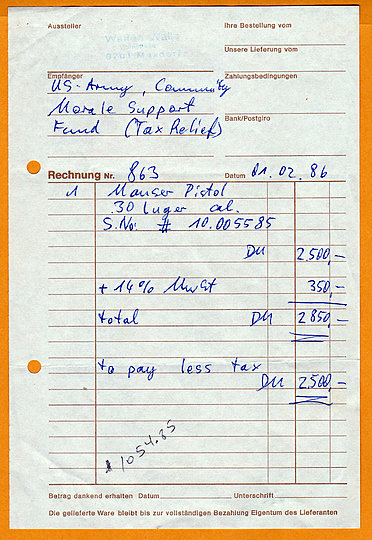 Aussteller
Ihre Bestellung vom
Unsere Lieferung vom
Empfänger
Zahlungsbedingungen
US-Army, Community
Morale Support
Bank/Postgiro
Fund (Tax Relief)
Rechnung Nr. 863 Datum 01.02.86
1 Mauser Pistol
.30 luger cal.
S.No: # 10.005585
DM 2.500,-
+ 14% MwSt 350,-
total DM 2 850,-
to pay less tax
DM 2.500,-
1054.85
Betrag dankend erhalten Datum Unterschrift
Die gelieferte Ware bleibt bis zur vollständigen Bezahlung Eigentum des Lieferanten